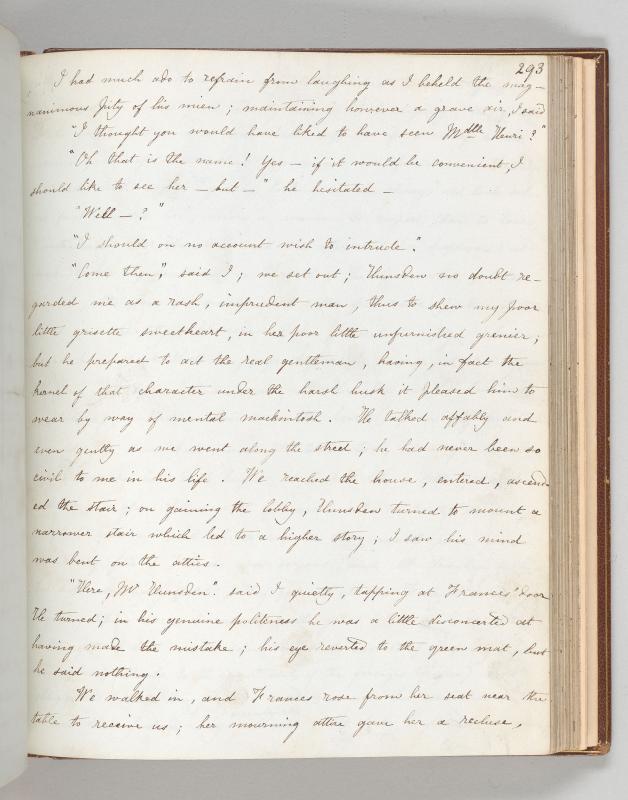 293
I had much ado to refrain from laughing as I beheld the mag-
nanimous pity of his mien; maintaining however a grave air, I said
"I thought you would have liked to have seen Mdlle Henri?"
"Oh that is the name! Yes — if it would be convenient, I
should like to see her — but —" he hesitated —
"Well — ?"
"I should on no account wish to intrude."
"Come then", said I; we set out; Hunsden no doubt re-
garded me as a rash, imprudent man, thus to shew my poor
little grisette sweetheart, in her poor little unfurnished grenier;
but he prepared to act the real gentleman, having, in fact the
kernel of that character under the harsh husk it pleased him to
wear by way of mental mackintosh. He talked affably and
even gently as we went along the street; he had never been so
civil to me in his life. We reached the house, entered, ascend-
ed the stair; on gaining the lobby, Hunsden turned to mount a
narrower stair which led to a higher story; I saw his mind
was bent on the attics.
"Here, Mr Hunsden". said I quietly, tapping at Frances' door
He turned; in his genuine politeness he was a little disconcerted at
having made the mistake; his eye reverted to the green mat, but
he said nothing.
We walked in, and Frances rose from her seat near the
table to receive us; her mourning attire gave her a recluse,